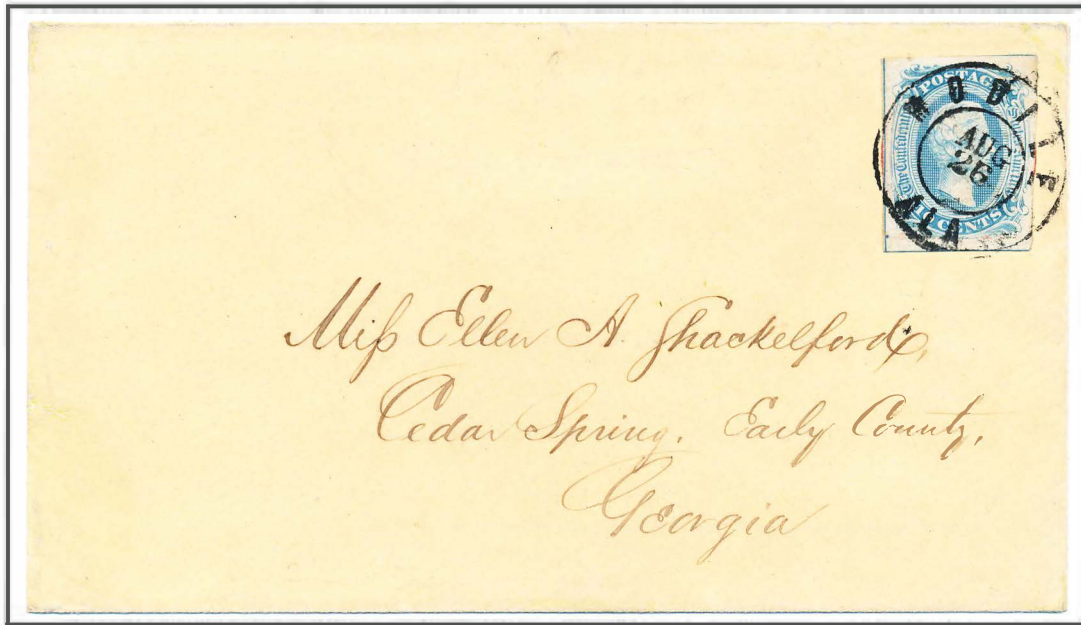 POSTAGE
The Confederate
CENTS
MOBILE
AUG
26
ALA
Miss Ellen A. Shackelford,
Cedar Spring, Early County,
Georgia